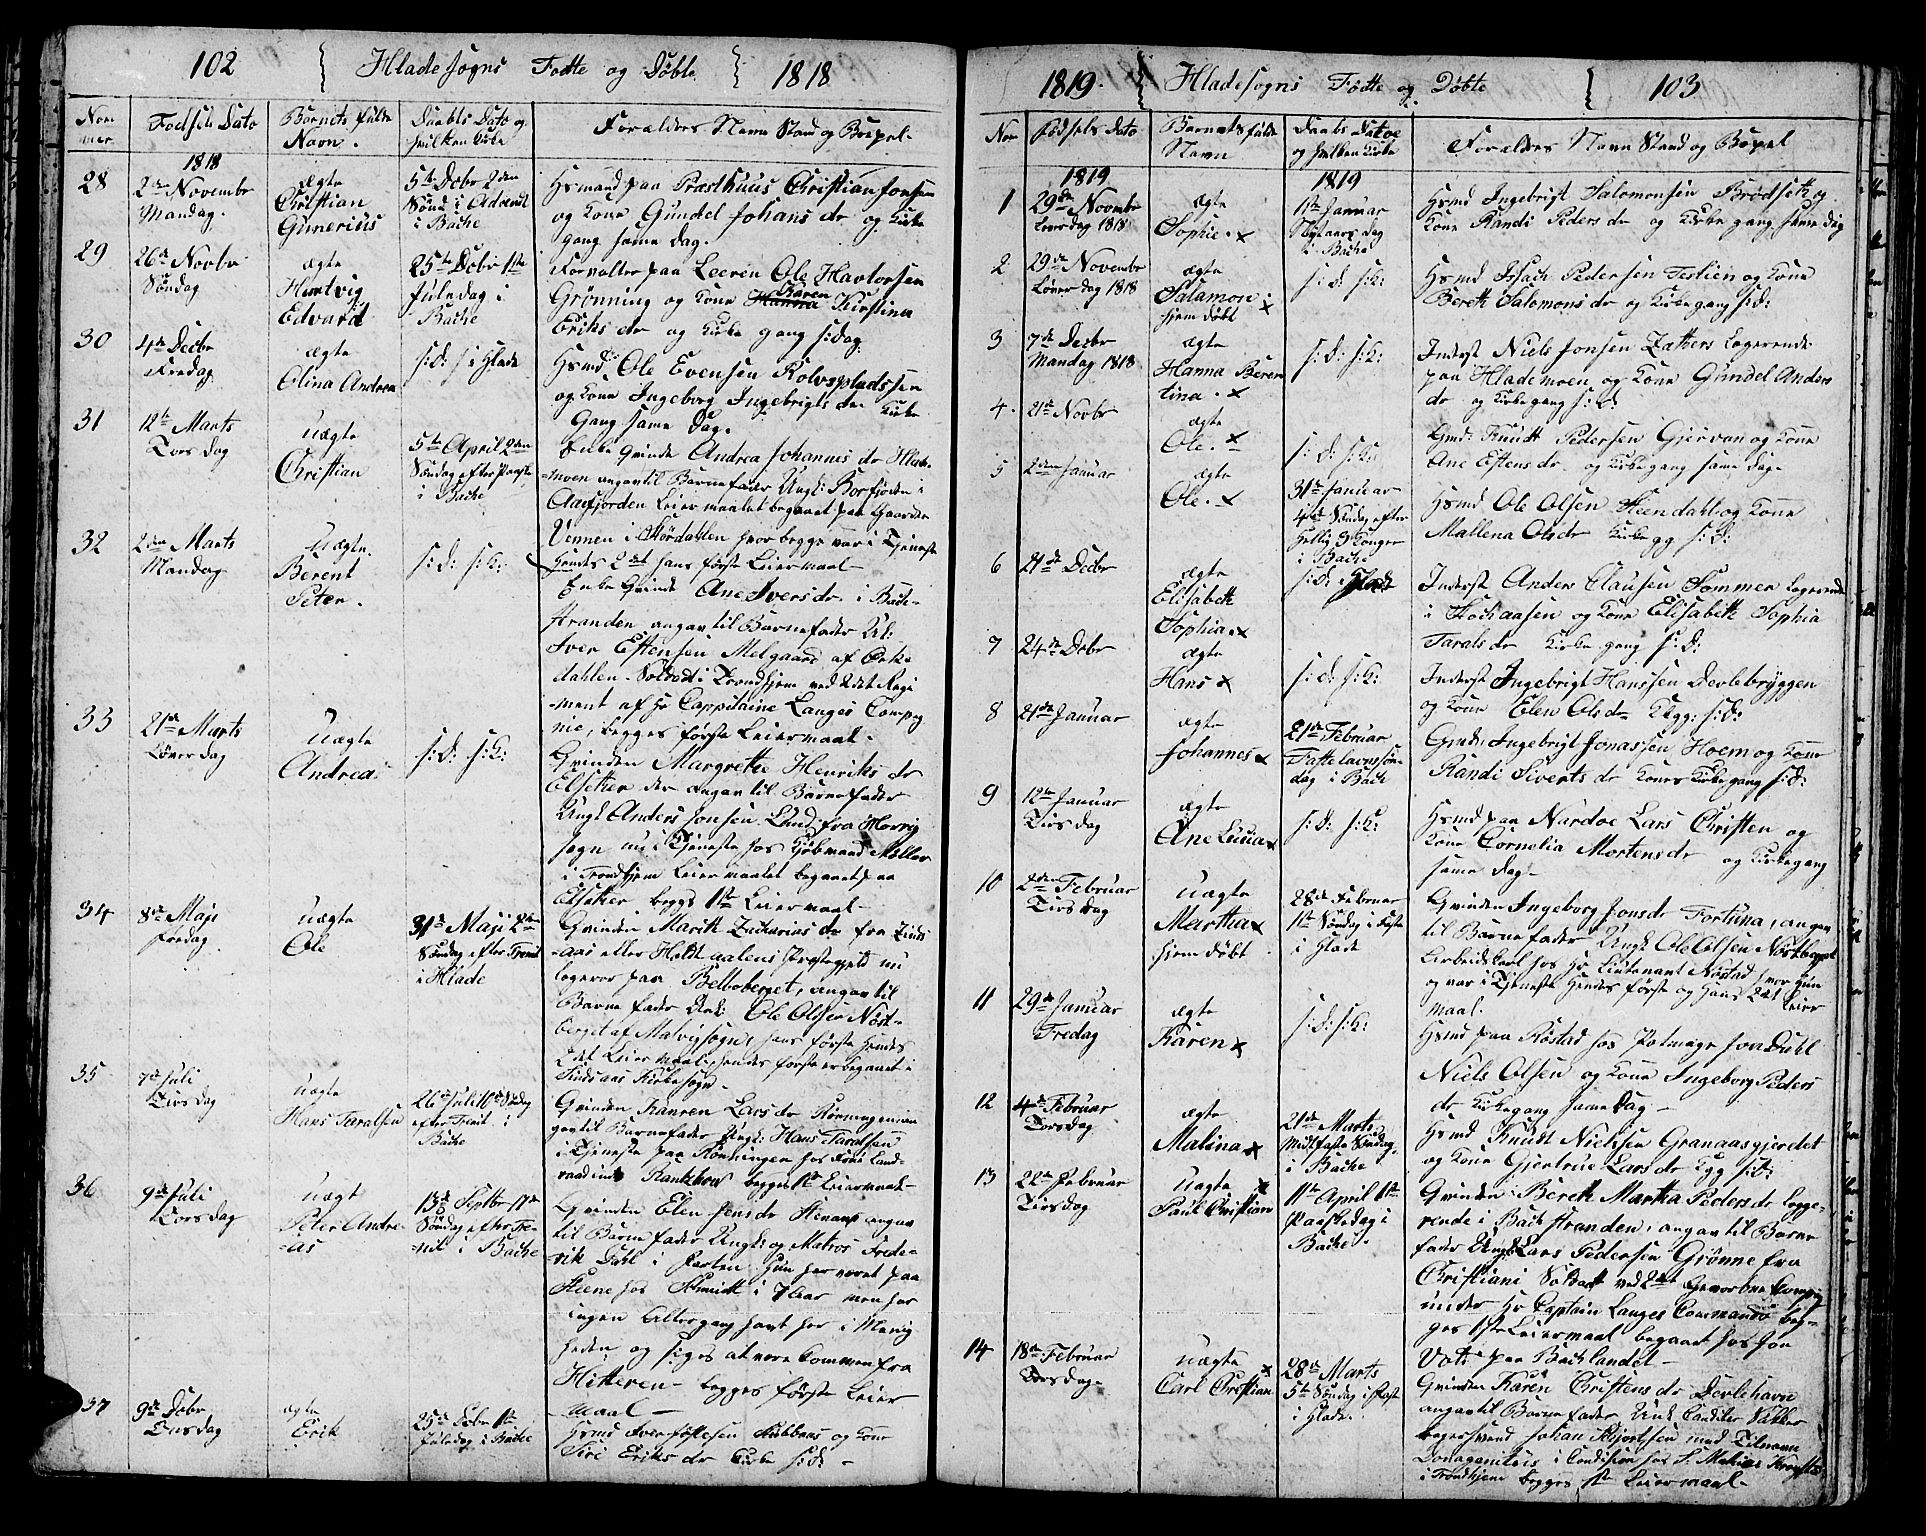 102 Hlade sogns Fødte og Døbte 1818
Fødsels Dato
Barnets fulde Navn.
Daabs Dato og hvilken Kirke
Forældres Navn Stand og Bopæl
1818
28
2den Novembr
Mandag.
ægte
Christian
Gunerius
5te Decbr 2den
Sønd i Advent
i Bache
Hsmand paa Præsthuus Christian Jonsen
og Kone Gundel Johans dr og Kirke
gang same Dag.
29
26de Novbr
Søndag
ægte
Hartvig
Edvard
25de Decbr 1ste
Juledag i
Bache
Forvalter paa Leeren Ole Havtorsen
Grønning og Kone Karen Kirstina
Eriks dr og Kirke gang s: Dag:
30
4de Decbr
Fredag
ægte
Elina Andrea
s: D: i Hlade
Hsmd Ole Evensen Rolvspladssen
og Kone Ingeborg Ingebrigts dr Kirke
Gang same Dag.
31
12te Marts
Torsdag
uægte
Christian
5te April 2den
Søndag efter Paaske
i Bache
Enke Qvinde Andrea Johannes dr Hlade-
moen angav til Barnefader Ungk: Borfjorden i
Aafjorden Leiermaalet begaaet paa Gaarden
Vennen i Størdahlen hvor begge var i Tjeneste
Hendes 2det hans første Leiermaal
32
2den Marts
Mandag
uægte.
Berent
Peter.
s: D: s: K:
Enke Qvinde Ane Ivers dr i Bache-
stranden angav til Barnefader Uk:
Iver Estensen Melgaard af Orke
dahlen Soldat i Trondhjem ved 2det Regi
ment af Hr Cappitaine Langes Compag
nie, begges første Leiermaal
33
21de Marts
Løverdag
uægte
Andrea
s: D: s: K:
Qvinden Margrethe Henriks dr
Elsether der angav til Barnefader
Ungk Anders Jonsen Lund fra Horrig
sogn nu i Tjeneste hos Kjøbmand Møller
i Trondhjem Leiermaalet begaaet paa
Elsether begges 1ste Leiermaal
34
8de Maji
Fredag
uægte
Ole
31te Maji 2den
Søndag efter Trenit
i Hlade
Qvinden Marith Zacharias dr fra Sinds
aas eller Holdtaalens Præstegjeld nu
logerer paa Belboberget, angav til
Barnefader Unk: Ole Olsen Nøst-
berget af Malvigsogn, hans første hendes
2det Leiermaal hendes første er begaaet i
Sindsaas Kirkesogn
35
7de Juli
Tirsdag
uægte
Hans Taralsen
26de Juli 10de Søndag
efter Trenit. i
Bache
Qvinden Karen Lars dr
gav til Barnefader Ungk: Hans Taralsen
i Tjeneste paa Rønningen hos Land-
raadinde Rantzhow begges 1ste Leiermaal
36
9de Juli
Torsdag
uægt
Peter Andre
-as
13de Septbr 17de
Søndag efter Tre-
nit i Bache
Qvinden Elen Jens dr Steenen angav
til Barnefader Ungk: og Matros Frede-
rik Dahl i Hun har været paa
Steene hos Schmidt i 7 Aar men har
ingen Altergang havt her i Menig
heden og siges at være kommen fra
Hitteren begges første Leier
maal
37
9de Decbr
Onsdag
ægte
Erik
25de Decbr 1ste
Juledag i Bache
Hsmd Iver Jostesen Stubbans og Kone
Siri Eriks dr Kirke s: D:
1819. Hlade sogns Fødte og Døbte 103
Nor
Fødsels Dato
Barnets fulde Navn
Daabs Datoe og hvilken Kirke
Forældres Navn Stand og Bopæl
1819
1819
1
29de Novembr
Løverdag 1818
ægte
Sophie. x
1ste Januar
Nytaars Dag
i Bache
Hsmd Ingebrigt Salomonsen Brødsett og
Kone Randi Peders dr og Kirke gang same Dag
2
29de Novembr
Løverdag 1818
ægte
Salamon. x
hjem døbt
s: D: s: K:
Hsmd Isach Pedersen Testien og Kone
Bereth Salomons dr og Kirkegang s: D:
3
7de Decbr
Mandag 1818
ægte
Hanna Beren
tina. x
s: D: s: K:
Inderst Niels Jonsen Zathers Logerende
paa Hlademoen og Kone Gundel Anders
dr og Kirkegang s: D:
4
21de Novbr
ægte
Ole. x
s: D: s: K:
Gmd: Knudt Pedersen Gjervan og Kone
Ane Estens dr og Kirkegang same Dag
5
2den Januar
ægte
Ole. x
31te Januar
4de Søndag efter
Hellig 3 Konger
i Bache
Hsmd Ole Olsen Steendahl og Kone
Mallena Ols dr Kirke gg s: D:
6
21de Decbr
ægte
Elisabeth
Sophia. x
s: D: i Hlade
Inderst Anders Clausen Sommer logerende
i Stochaasen og Kone Elisabeth Sophia
Tarals dr Kirke gang s: D:
7
24de Decbr
ægte
Hans x
s: D: s: K:
Inderst Ingebrigt Hanssen Devlebryggen
og Kone Elen Ols dr Kgg: s: D:
8
21de Januar
ægte
Johannes x
21de Februar
Fastelavnssøn-
dag i Bach
Gmd: Ingebrigt Jonassen Hoem og Kone
Randi Siverts dr Kones Kirkegang s: D:
9
12te Januar
Tirsdag
ægte
Ane Lucia x
s: D: s: K:
Hsmd paa Nardoe Lars Christen og
Kone Cornelia Mortens dr og Kirkegang
same Dag
10
2den Februar
Tirsdag
uægte
Martha x
hjem døbt
28de Februar
1ste Søndag i Faste
i Hlade
Qvinden Ingeborg Jons dr Fortuna, angav
til Barnefader Ungk Ole Olsen Nøstberget
Arbeidskarl hos Hr Lieutenant Nøstad hvor Hun
og var i Tjeneste Hendes første og Hans 2det Leier
maal.
11
29de Januar
Fredag
ægte
Karen x
s: D: s: K:
Hsmd paa Røstad hos Jon Dahl
Niels Olsen og Kone Ingeborg Peders
dr Kirkegang same Dag
12
4de Februar
Torsdag
ægte
Malina x
21de Marts
Midtfaste Søndag
i Bache
Hsmd Knudt Nielsen Granaasgjerdet
og Kone Gjertrue Lars dr Kgg s: D:
13
22de Februar
Tirsdag
uægte x
Paul Christian
11te April 1ste
Paaskedag i
Bache
Qvinden Bereth Martha Peders dr logge-
rende i Bachstranden, angav til Barne
fader Ungk Lars Pedersen Grønne fra
Christiani Soldat ved 2det Geworbne Compag
under Hr Captain Langes Commando beg-
ges 1ste Leiermaal begaaet hos Jon
paa Bachlandet
14
18de Februar
Torsdag
uægte x
Carl Christian
28de Marts
5te Søndag i Faste
i Hlade.
Qvinden Karen Christens dr Devlehavn
angav til Barnefader Unk Conditer Sukker
bagersvend Johan Hjortsen med Tilnavn
i Condision hos S. Mathias
i Trondhjem begges 1ste Leiermaal